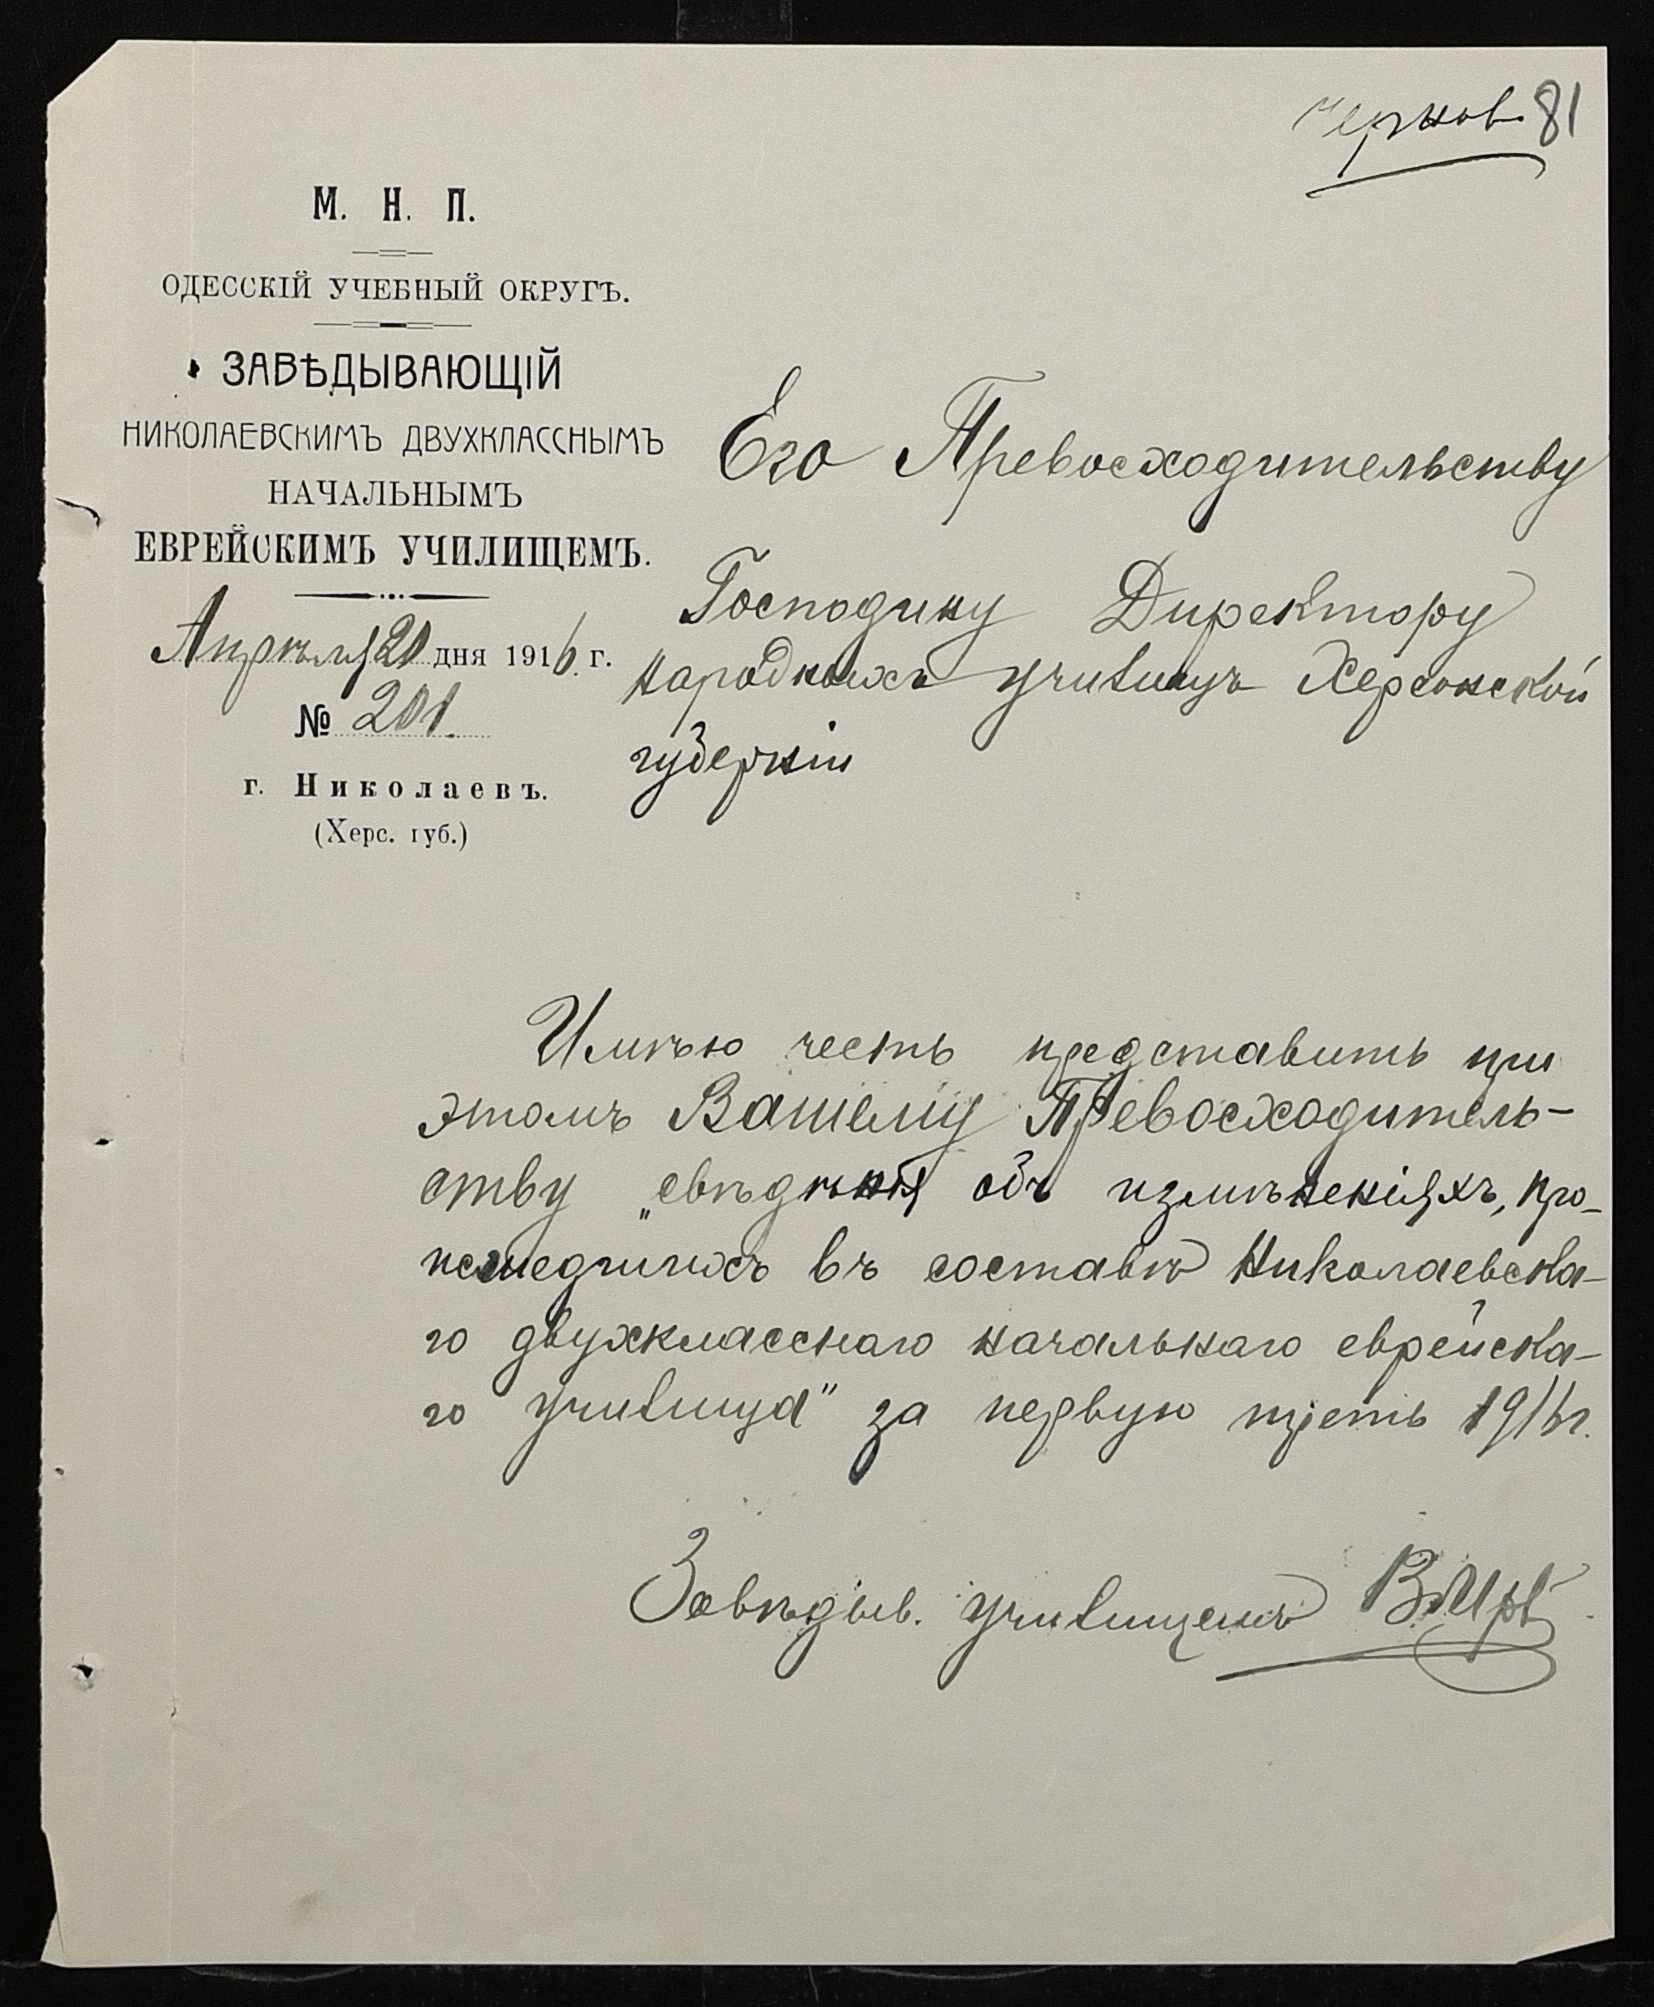 чернов. 81
М. Н. П.
ОДЕССКІЙ УЧЕБНЫЙ ОКРУГЪ.
ЗАВѢДЫВАЮЩІЙ
НИКОЛАЕВСКИМЪ ДВУХКЛАССНЫМЪ
НАЧАЛЬНЫМЪ
ЕВРЕЙСКИМЪ УЧИЛИЩЕМЪ.
Апрѣля 20 дня 1916 г.
№ 201.
г. Николаевъ.
(Херс. губ.)
Его Превосходительству
Господину Директору
народныхъ училищъ Херсонской
губерніи
Имѣю честь представить при
этомъ Вашему Превосходитель-
ству „свѣдѣнія объ измѣненіяхъ, про-
исшедшихъ въ составѣ Николаевска-
го двухкласснаго начальнаго еврейска-
го училища" за первую треть 1916 г.
Завѣдыв. училищемъ